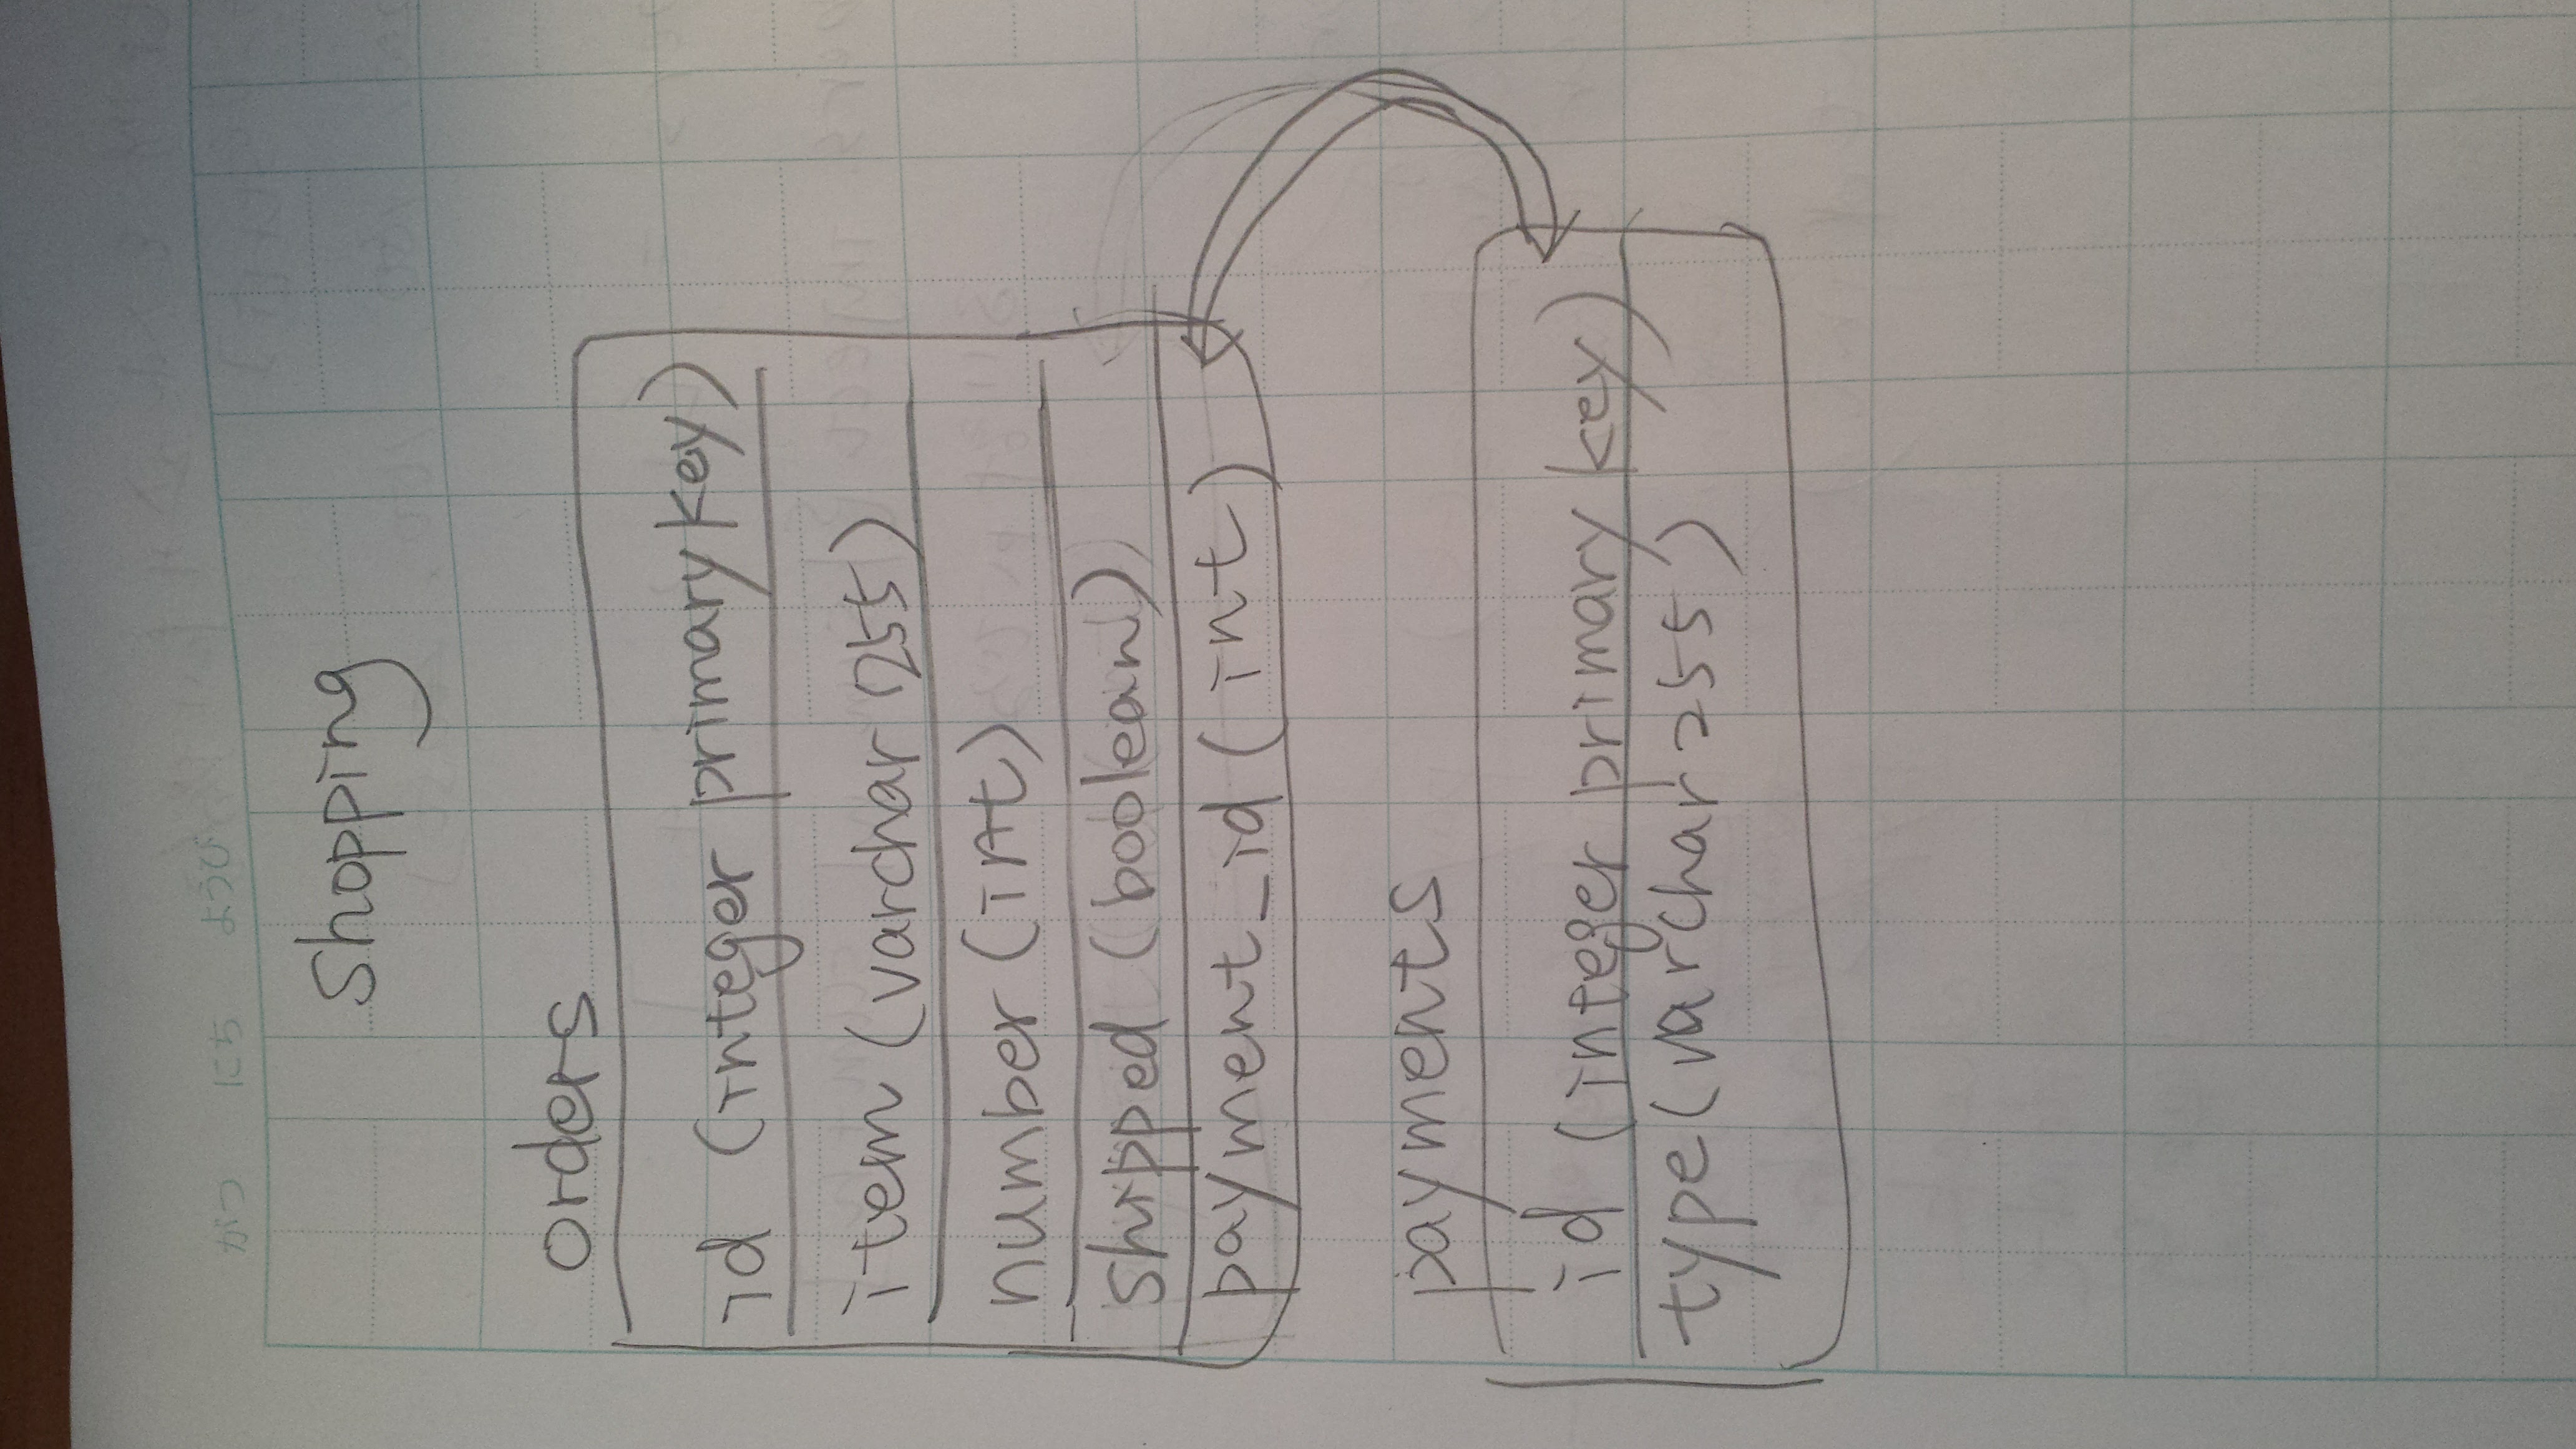 Shopping
orders
id (integer primary key)
item (varchar 255)
number (int)
shipped (boolean)
payment_id (int)
payments
id (integer primary key)
type (varchar 255)
がつ にち ようび